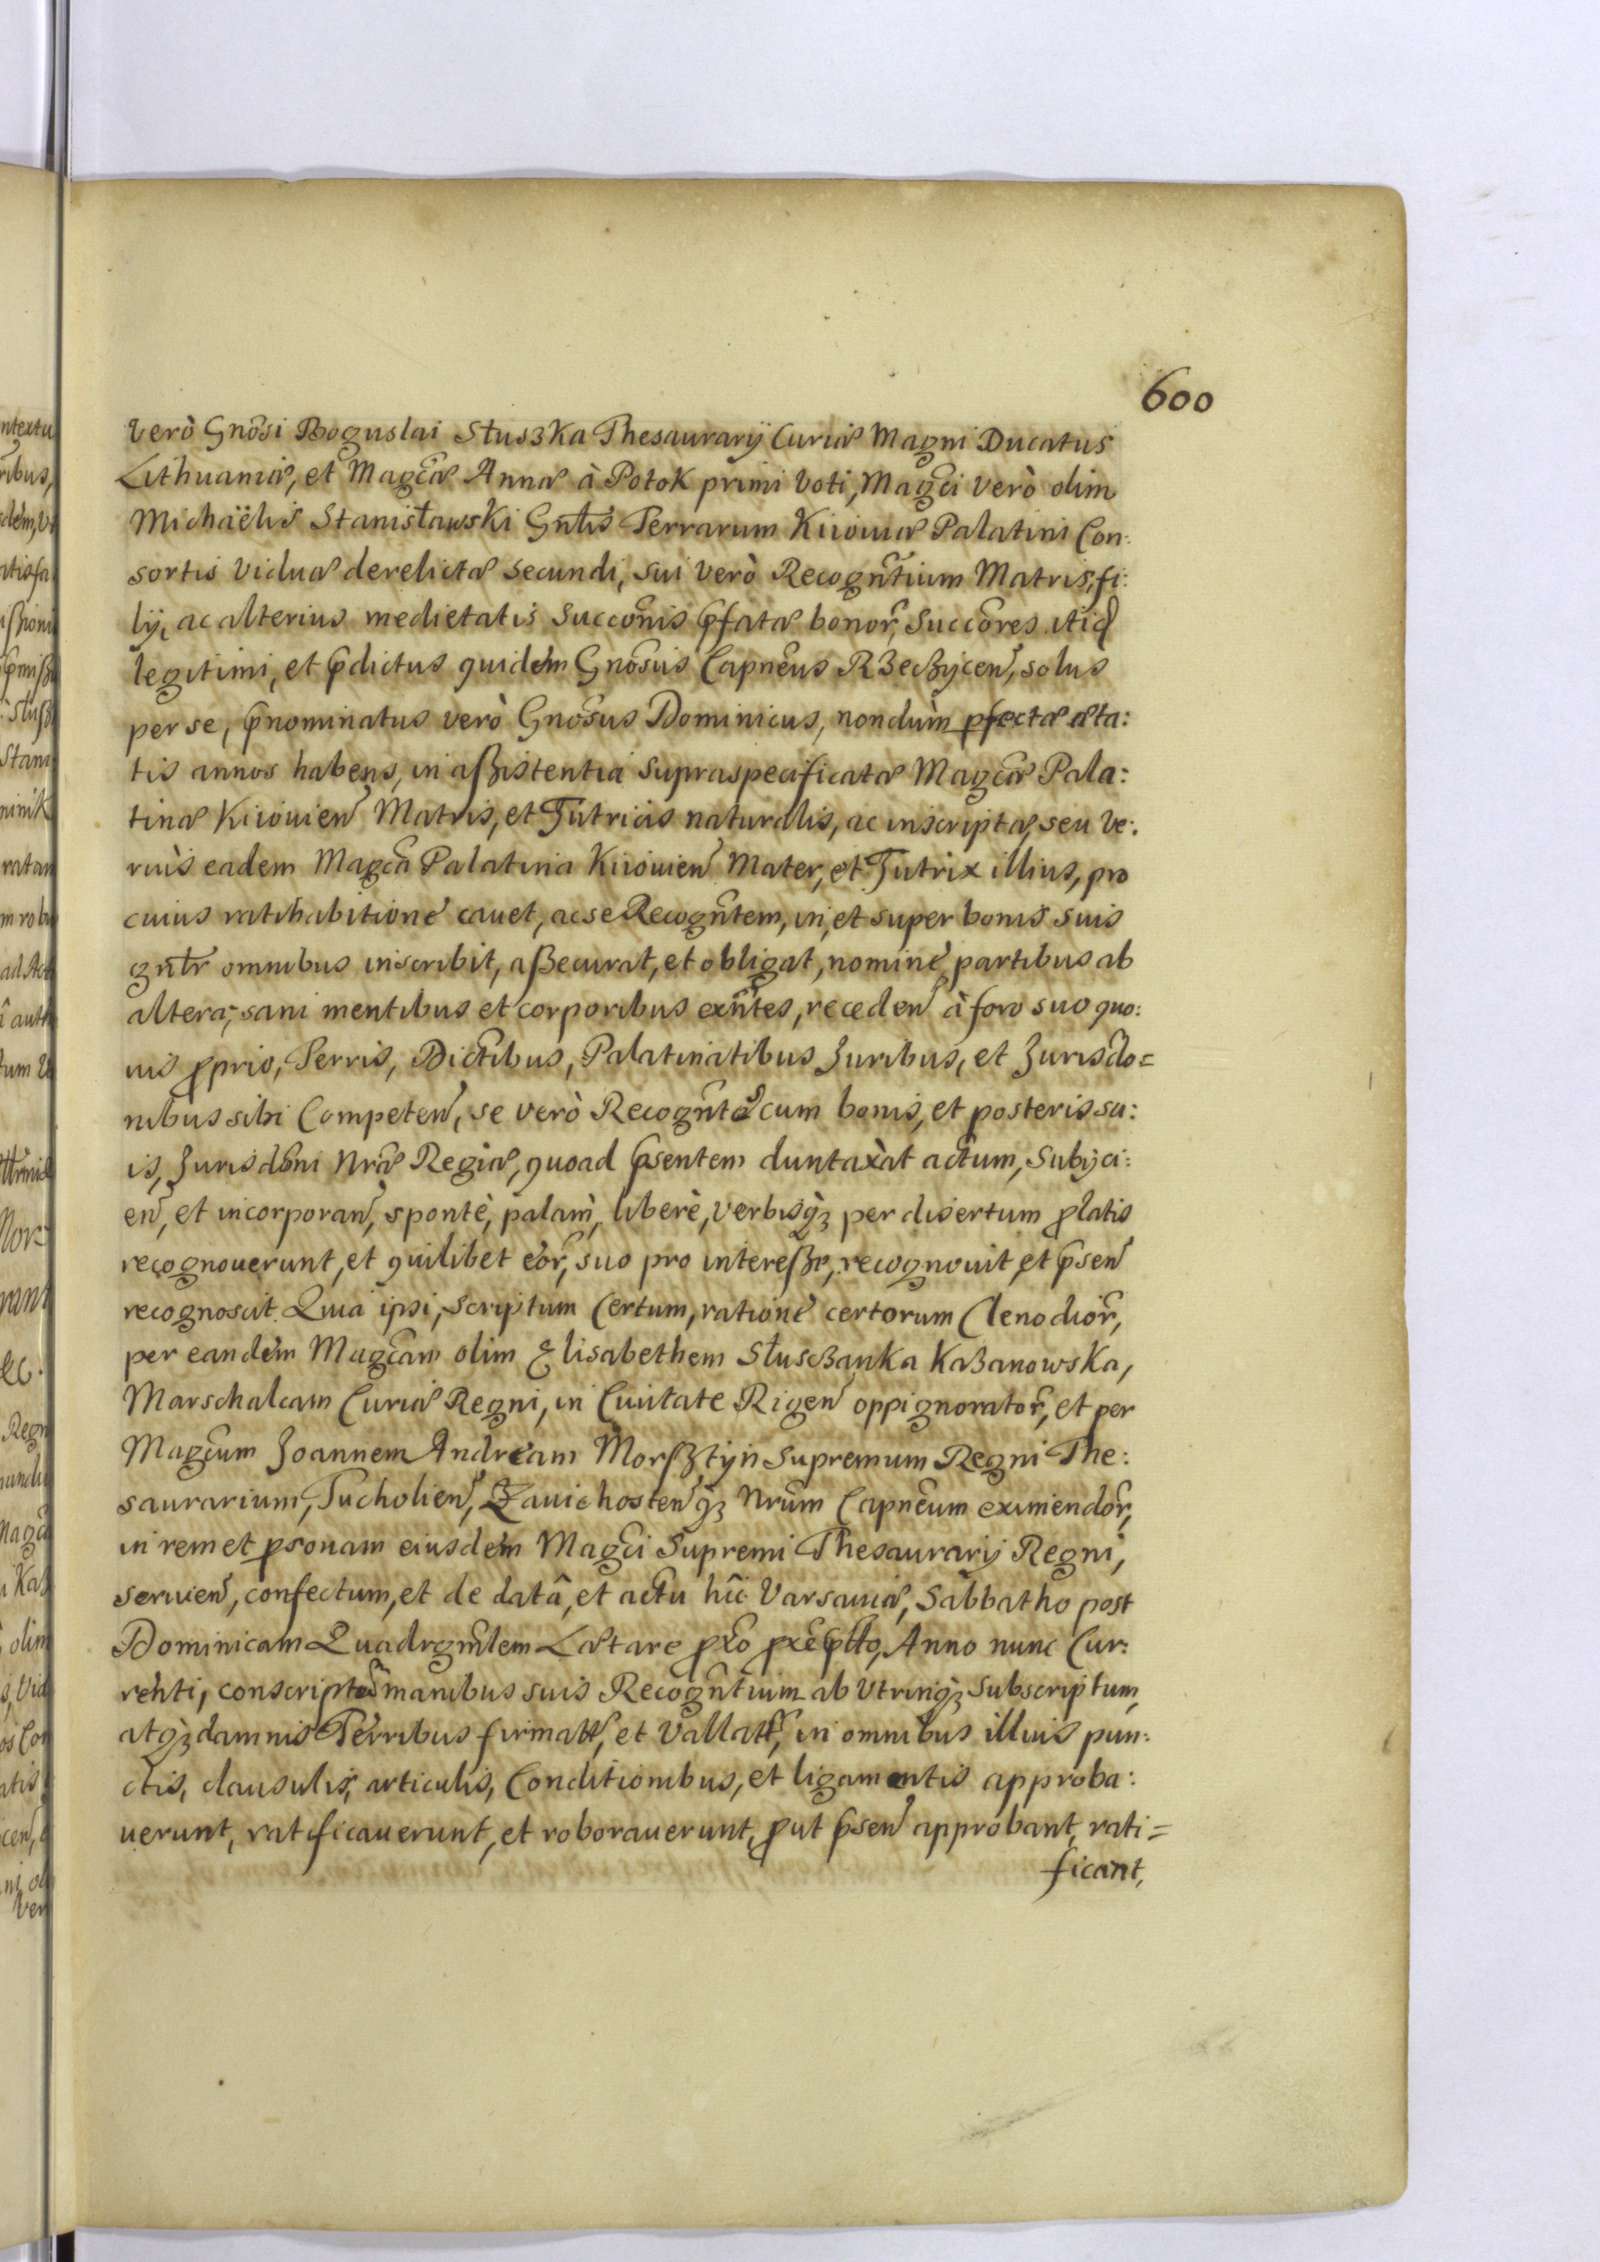 600
verò Gnõsi Boguslai Słuszka Thesaurarÿ Curiæ Magni Ducatus
Lithuaniæ, et Magcæ Annæ à Potok primi voti, Magci verò olim
Michaëlis Stanisławski Gnlis Terrarum Kiiouiæ Palatini Con:
sortis viduæ derelictæ secundi, sui verò Recogntium Matris, fi:
lÿ, ac alterius medietatis Succonis pfatæ bonor, Succores itid
legitimi, et pdictus quidem Gnosus Capneus Rzeczycen, solus
per se, pnominatus verò Gnosus Dominicus, nondùm pfectæ æta:
tis annos habens, in aßistentia supraspecificatæ Magcæ Pala:
tinæ Kiiouien Matris, et Tutricis naturalis, ac inscriptæ, seu ve:
riùs eadem Magca Palatina Kiiouien Mater, et Tutrix illius, pro
cuius ratihabitione cauet, ac se Recogntem, in, et super bonis suis
gnlr omnibus inscribit, aßecurat, et obligat, nomine, partibus ab
altera, sani mentibus et corporibus exntes, receden à foro suo quo:
uis pprio, Terris, Dictibus, Palatinatibus Juribus, et Jurisdo=
nibus sibi Competen, se verò Recognt cum bonis, et posteris su:
is, Jurisdoni Nræ Regiæ, quoad psentem duntaxàt actum, Subÿci:
en, et incorporan, spontè, palam, liberè, verbisq3 per disertum platis
recognouerunt, et quilibet eor, suo pro intereße, recognouit, et psen
recognoscit. Quia ipsi, Scriptum Certum, ratione certorum Clenodior,
per eandem Magcam olim Elisabethem Słusczanka Kazanowska,
Marschalcam Curiæ Regni, in Ciuitate Rigen oppignorator, et per
Magcum Joannem Andream Morsztÿn Supremum Regni The:
saurarium, Tucholien, Zauichosten q3 Nrum Capneum eximendor,
in rem et psonam eiusdem Magci Supremi Thesaurarÿ Regni,
seruien, confectum, et de datâ, et actu hîc Varsauiæ, Sabbatho post
Dominicam Quadrgmlem Lætare Anno nunc Cur:
renti, conscript manibus suis Recogntium ab vtrinq3 Subscriptum,
atq3 damnis Terribus firmatt, et vallatt, in omnibus illius pun:
ctis, clausulis, articulis, Conditionibus, et ligamentis approba:
uerunt, ratificauerunt, et roborauerunt, put psen approbant, rati=
ficant,